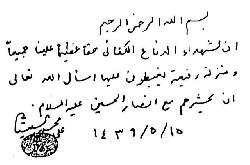 بسم الله الرحمن الرحيم
ان لشهداء الدفاع الكفائي حقاً عظيماً علينا جميعاً
ومنزلة رفيعة يغبطون عليها اسأل الله تعالى
ان يحشرهم مع انصار الحسين عليه السلام.
١٤٣٩/٥/١٥